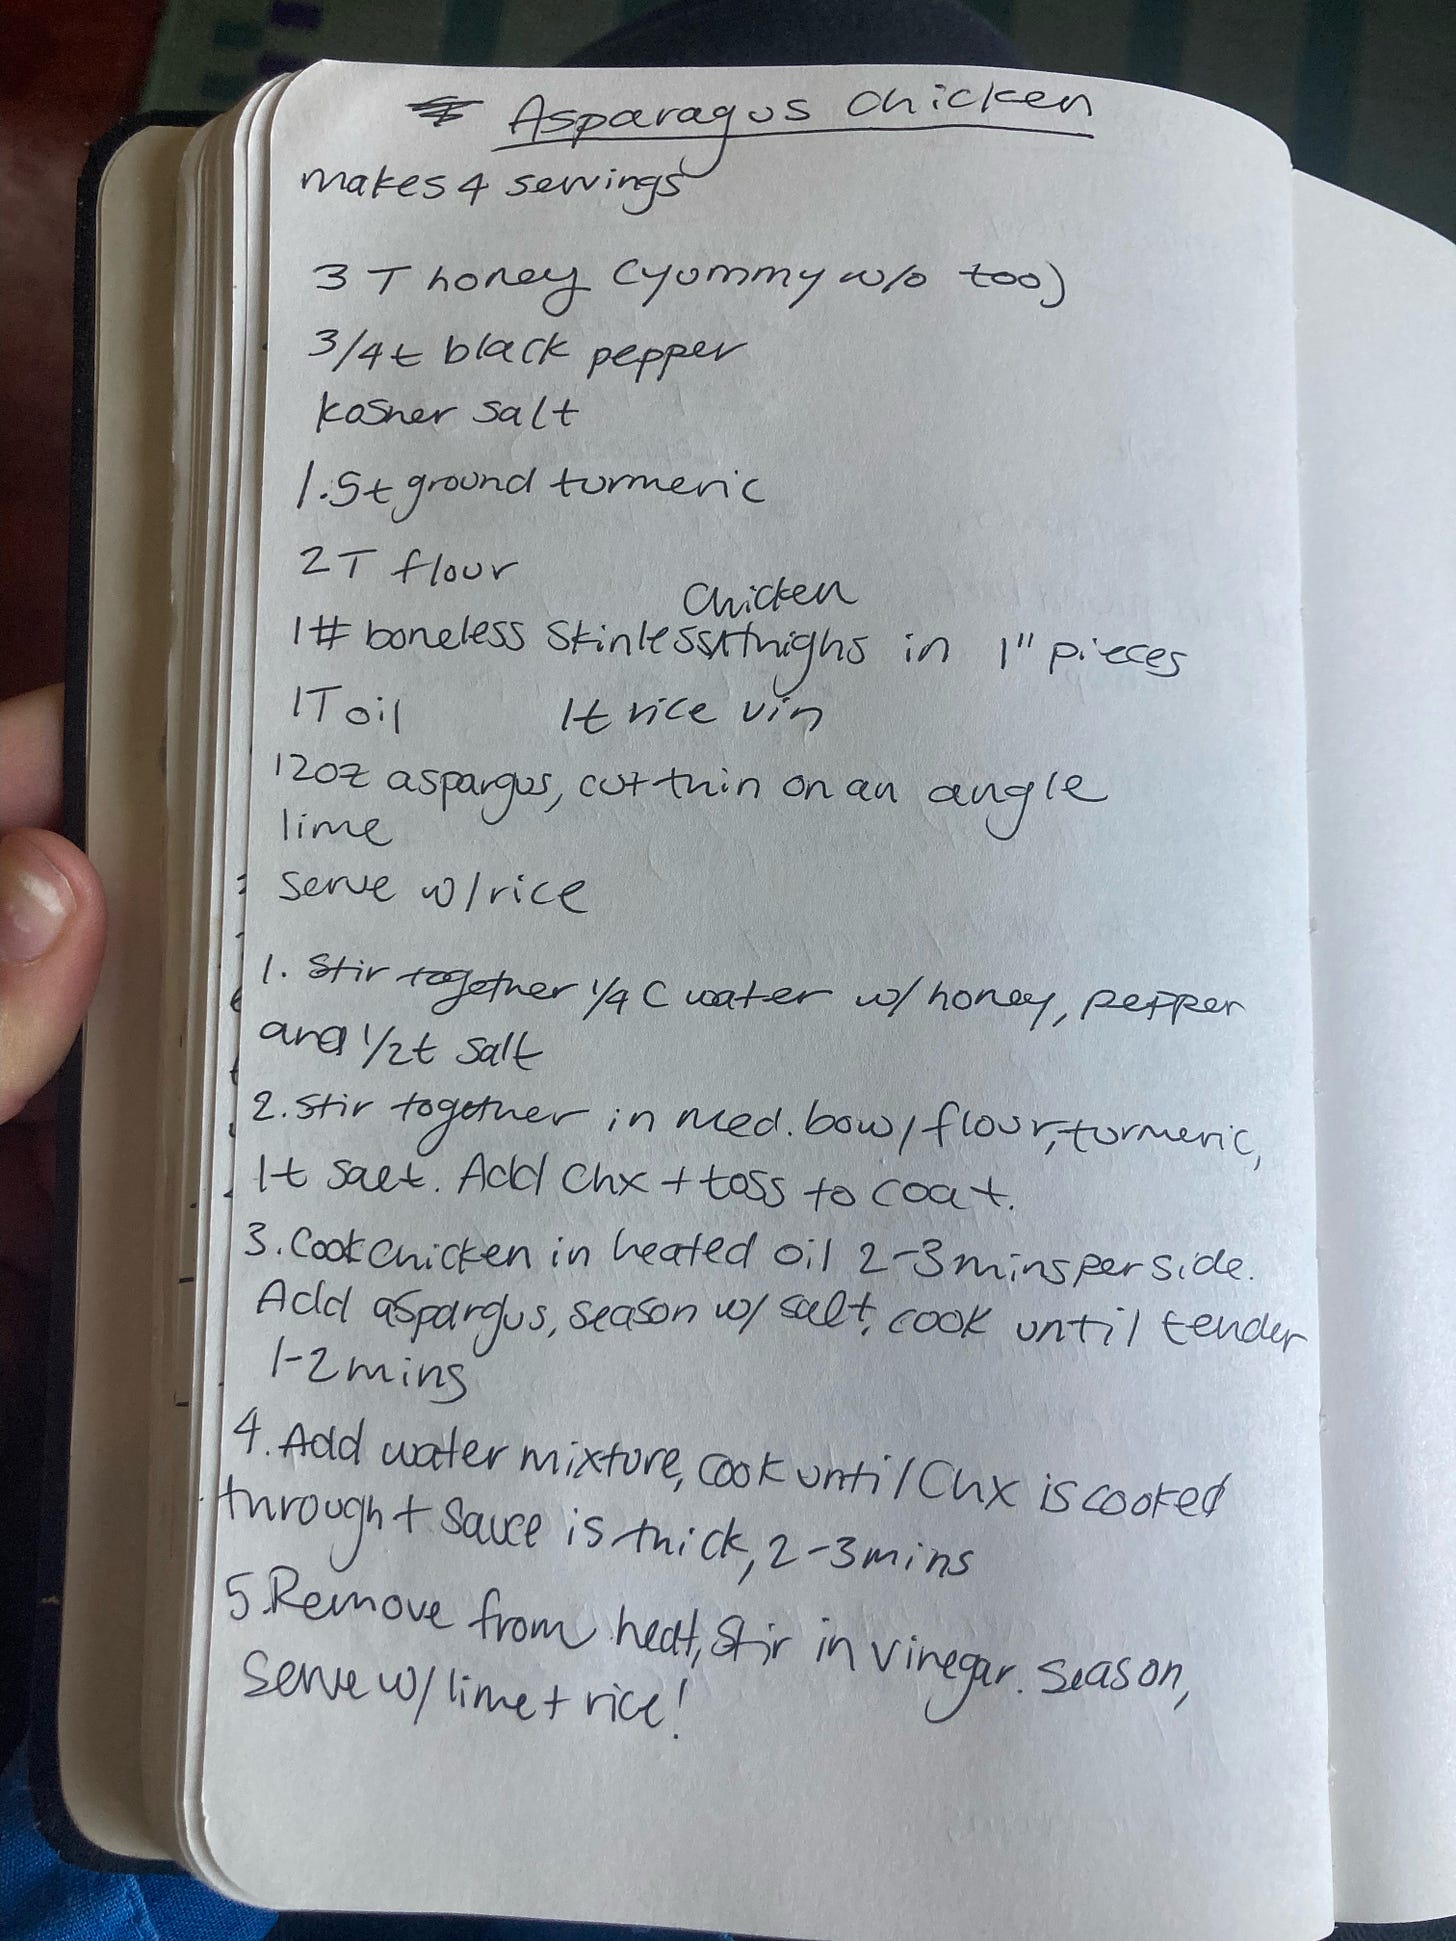 Asparagus Chicken
makes 4 servings
3 T honey (yummy w/o too)
3/4 t black pepper
kosher salt
1.5t ground turmeric
2T flour
chicken
1# boneless skinless thighs in 1" pieces
1T oil 1t rice vin
12oz aspargus, cut thin on an angle
lime
serve w/rice
1. Stir together 1/4 C water w/ honey, pepper
and 1/2t salt
2. Stir together in med. bowl flour, turmeric,
1t salt. Add Chx + toss to coat.
3. Cook chicken in heated oil 2-3 mins per side.
Add aspargus, season w/ salt, cook until tender
1-2 mins
4. Add water mixture, cook until Chx is cooked
through + sauce is thick, 2-3 mins
5. Remove from heat, stir in vinegar. Season,
Serve w/ lime + rice!